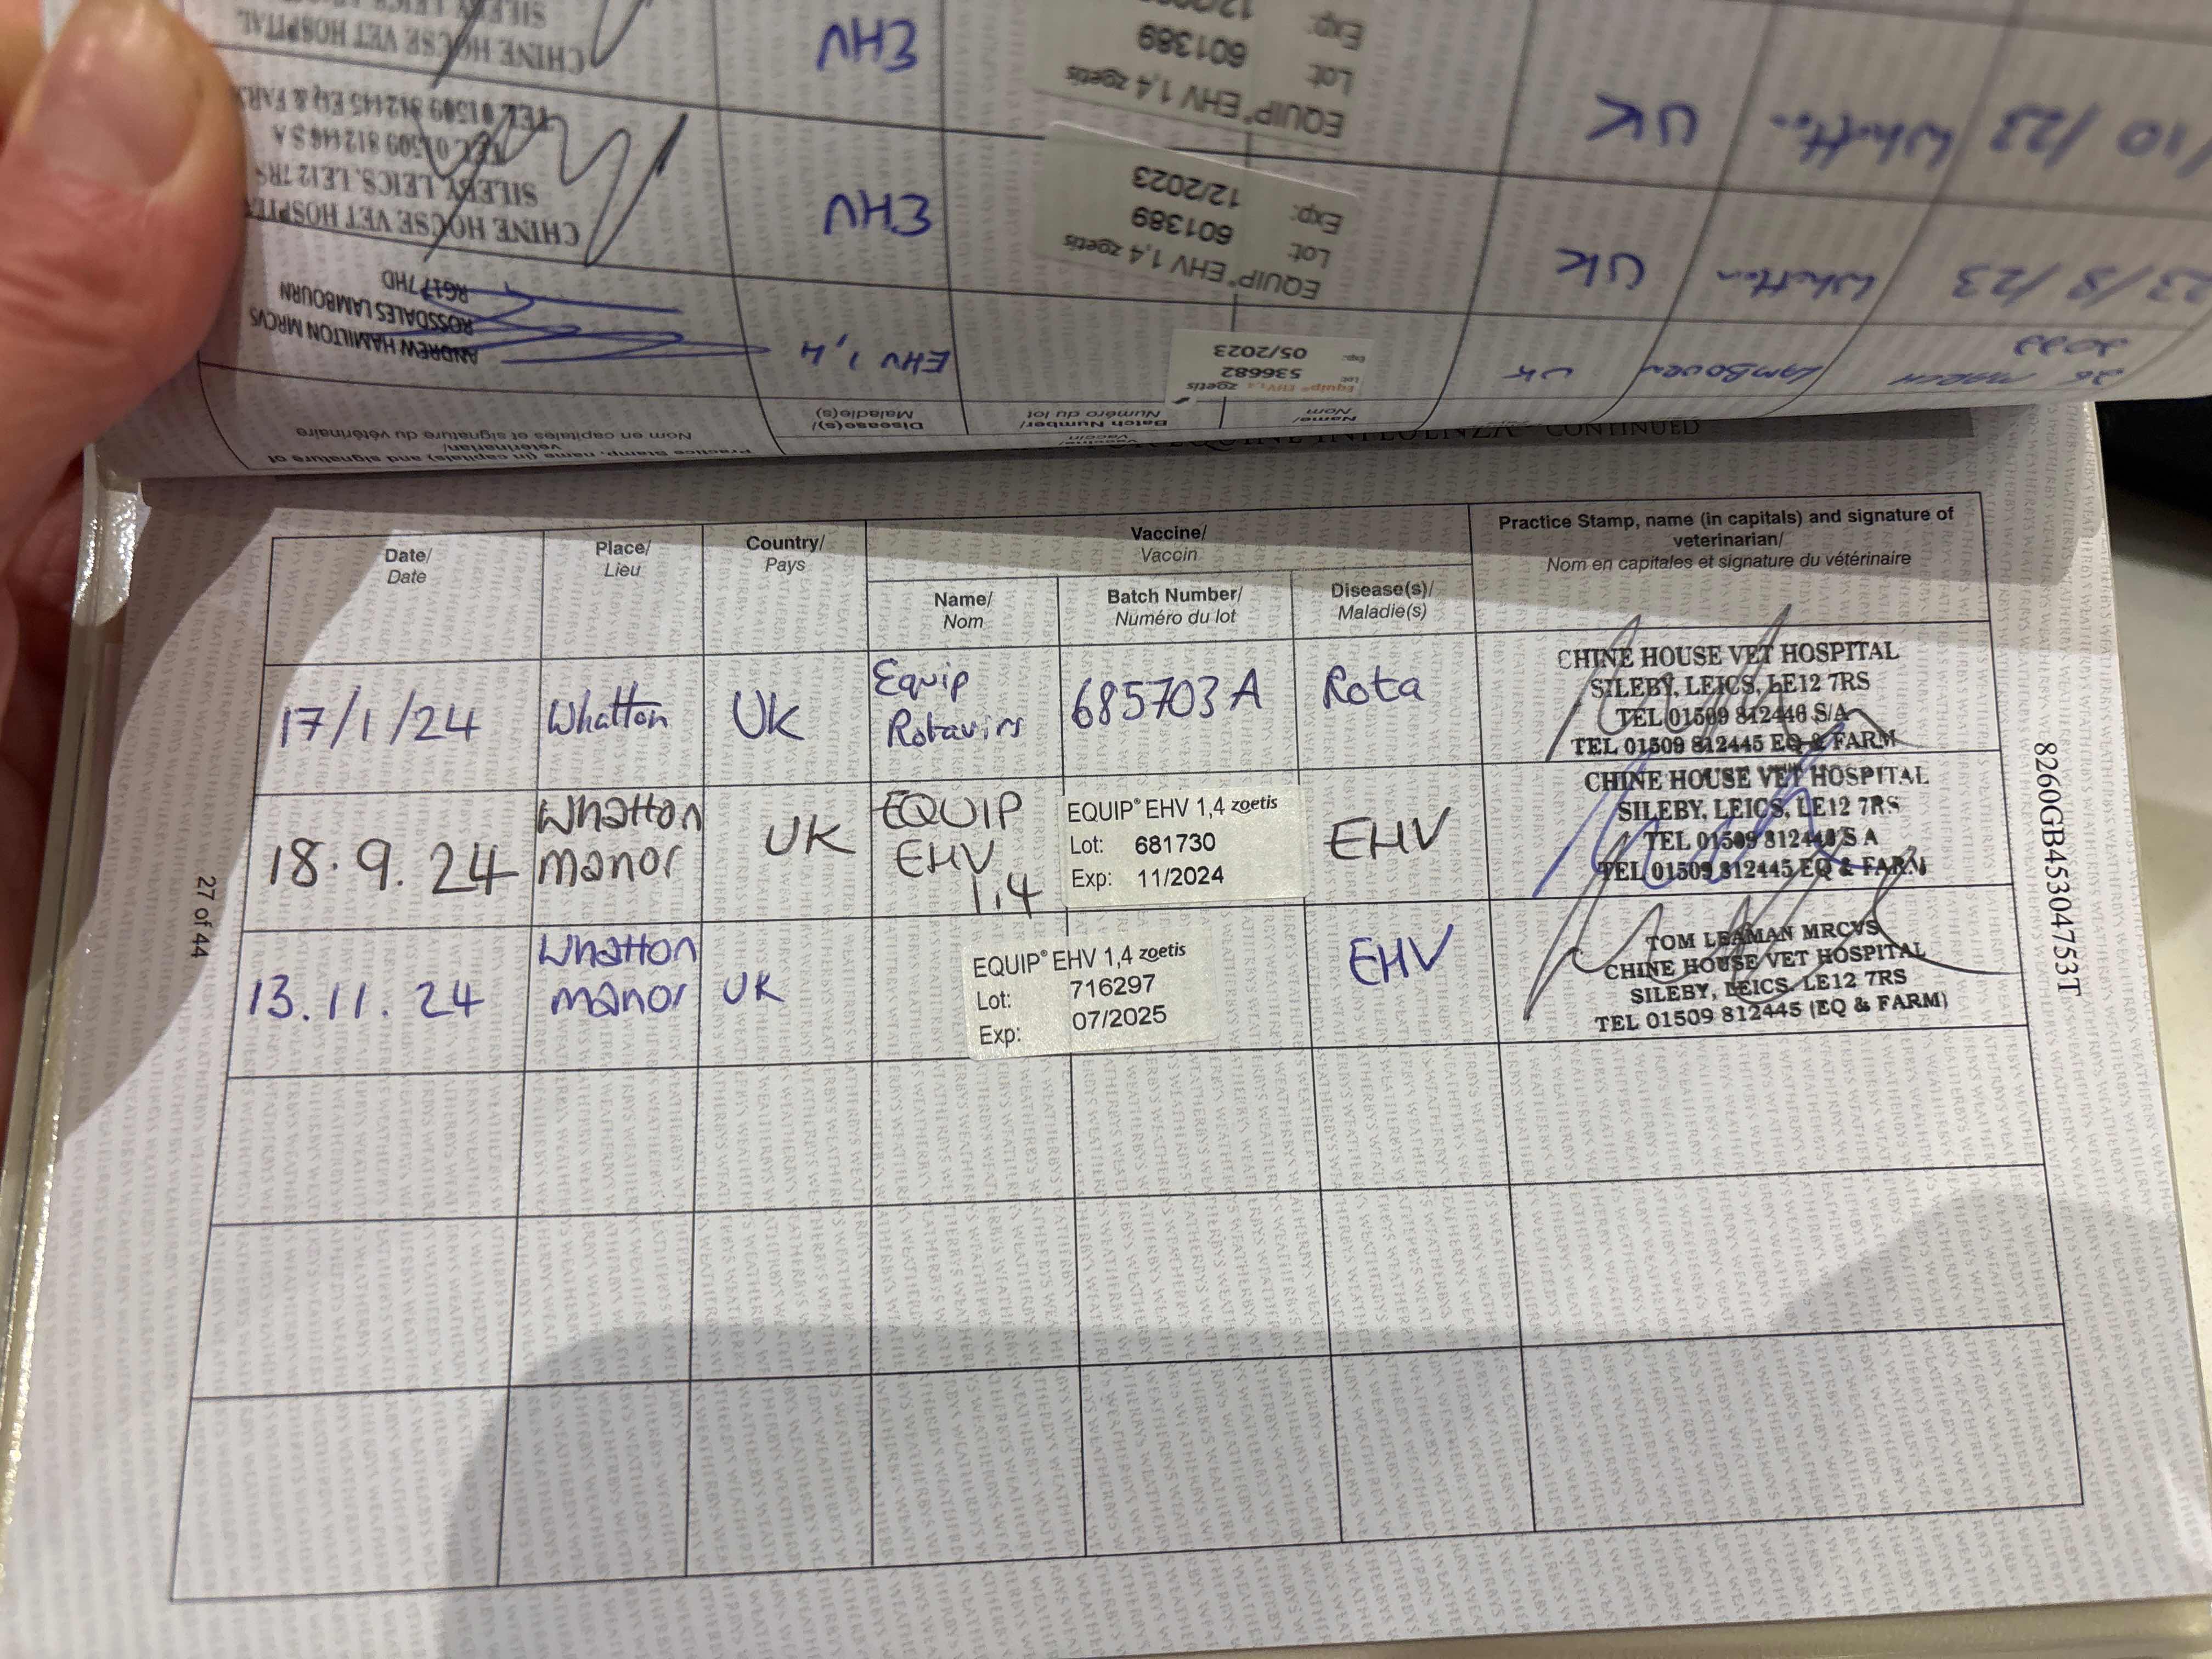 CHINE HOUSE VET HOSPITAL
EHV
EQUIP® EHV 1,4 zoetis
Lot: 601389
Exp: 
/10/23 Whatton UK
CHINE HOUSE VET HOSPITAL
SILEBY, LEICS, LE12 7RS
TEL 01509 812446 S A
TEL 01509 812445 EQ & FARM
EHV
EQUIP® EHV 1,4 zoetis
Lot: 601389
Exp: 12/2023
23/8/23 Whatton UK
ANDREW HAMILTON MRCVS
ROSSDALES LAMBOURN
RG17 7HD
EHV 1,4
Equip® EHV 1,4 zoetis
Lot: 536682
Exp: 05/2023
26 MARCH LAMBOURN UK
Name/
Nom
Batch Number/
Numéro du lot
Disease(s)/
Maladie(s)
Vaccine/
Vaccin
Practice Stamp, name (in capitals) and signature of
veterinarian/
Nom en capitales et signature du vétérinaire
EQUINE INFLUENZA CONTINUED
Date/
Date
Place/
Lieu
Country/
Pays
Vaccine/
Vaccin
Practice Stamp, name (in capitals) and signature of
veterinarian/
Nom en capitales et signature du vétérinaire
Name/
Nom
Batch Number/
Numéro du lot
Disease(s)/
Maladie(s)
17/1/24 Whatton UK
Equip
Rotavirs
685703A Rota
CHINE HOUSE VET HOSPITAL
SILEBY, LEICS, LE12 7RS
TEL 01509 812446 S/A
TEL 01509 812445 EQ & FARM
18.9.24
Whatton
manor
UK
EQUIP
EHV
1,4
EQUIP® EHV 1,4 zoetis
Lot: 681730
Exp: 11/2024
EHV
CHINE HOUSE VET HOSPITAL
SILEBY, LEICS, LE12 7RS
TEL 01509 812446 S A
TEL 01509 812445 EQ & FARM
13.11.24
Whatton
manor
UK
EQUIP® EHV 1,4 zoetis
Lot: 716297
Exp: 07/2025
EHV
TOM LEAMAN MRCVS
CHINE HOUSE VET HOSPITAL
SILEBY, LEICS. LE12 7RS
TEL 01509 812445 (EQ & FARM)
27 of 44
8260GB45304753T